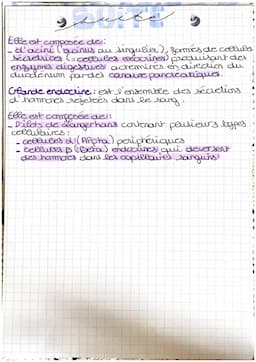 suite
Elle est composée de:
- d'acini (acinus au singulier), formés de cellules
sécrétrices (= cellules exocrines) produisant des
enzymes digestives acheminées en direction du
duodénum par des canaux pancréatiques.
Glande endocrine: est l'ensemble des sécrétions
d'hormones rejetées dans le sang.
Elle est composée de:
- Îlots de Langerhans contenant plusieurs types
cellulaires:
- cellules α (Alpha) périphériques
- cellules β (Beta) endocrines qui déversent
des hormones dans les capillaires sanguins